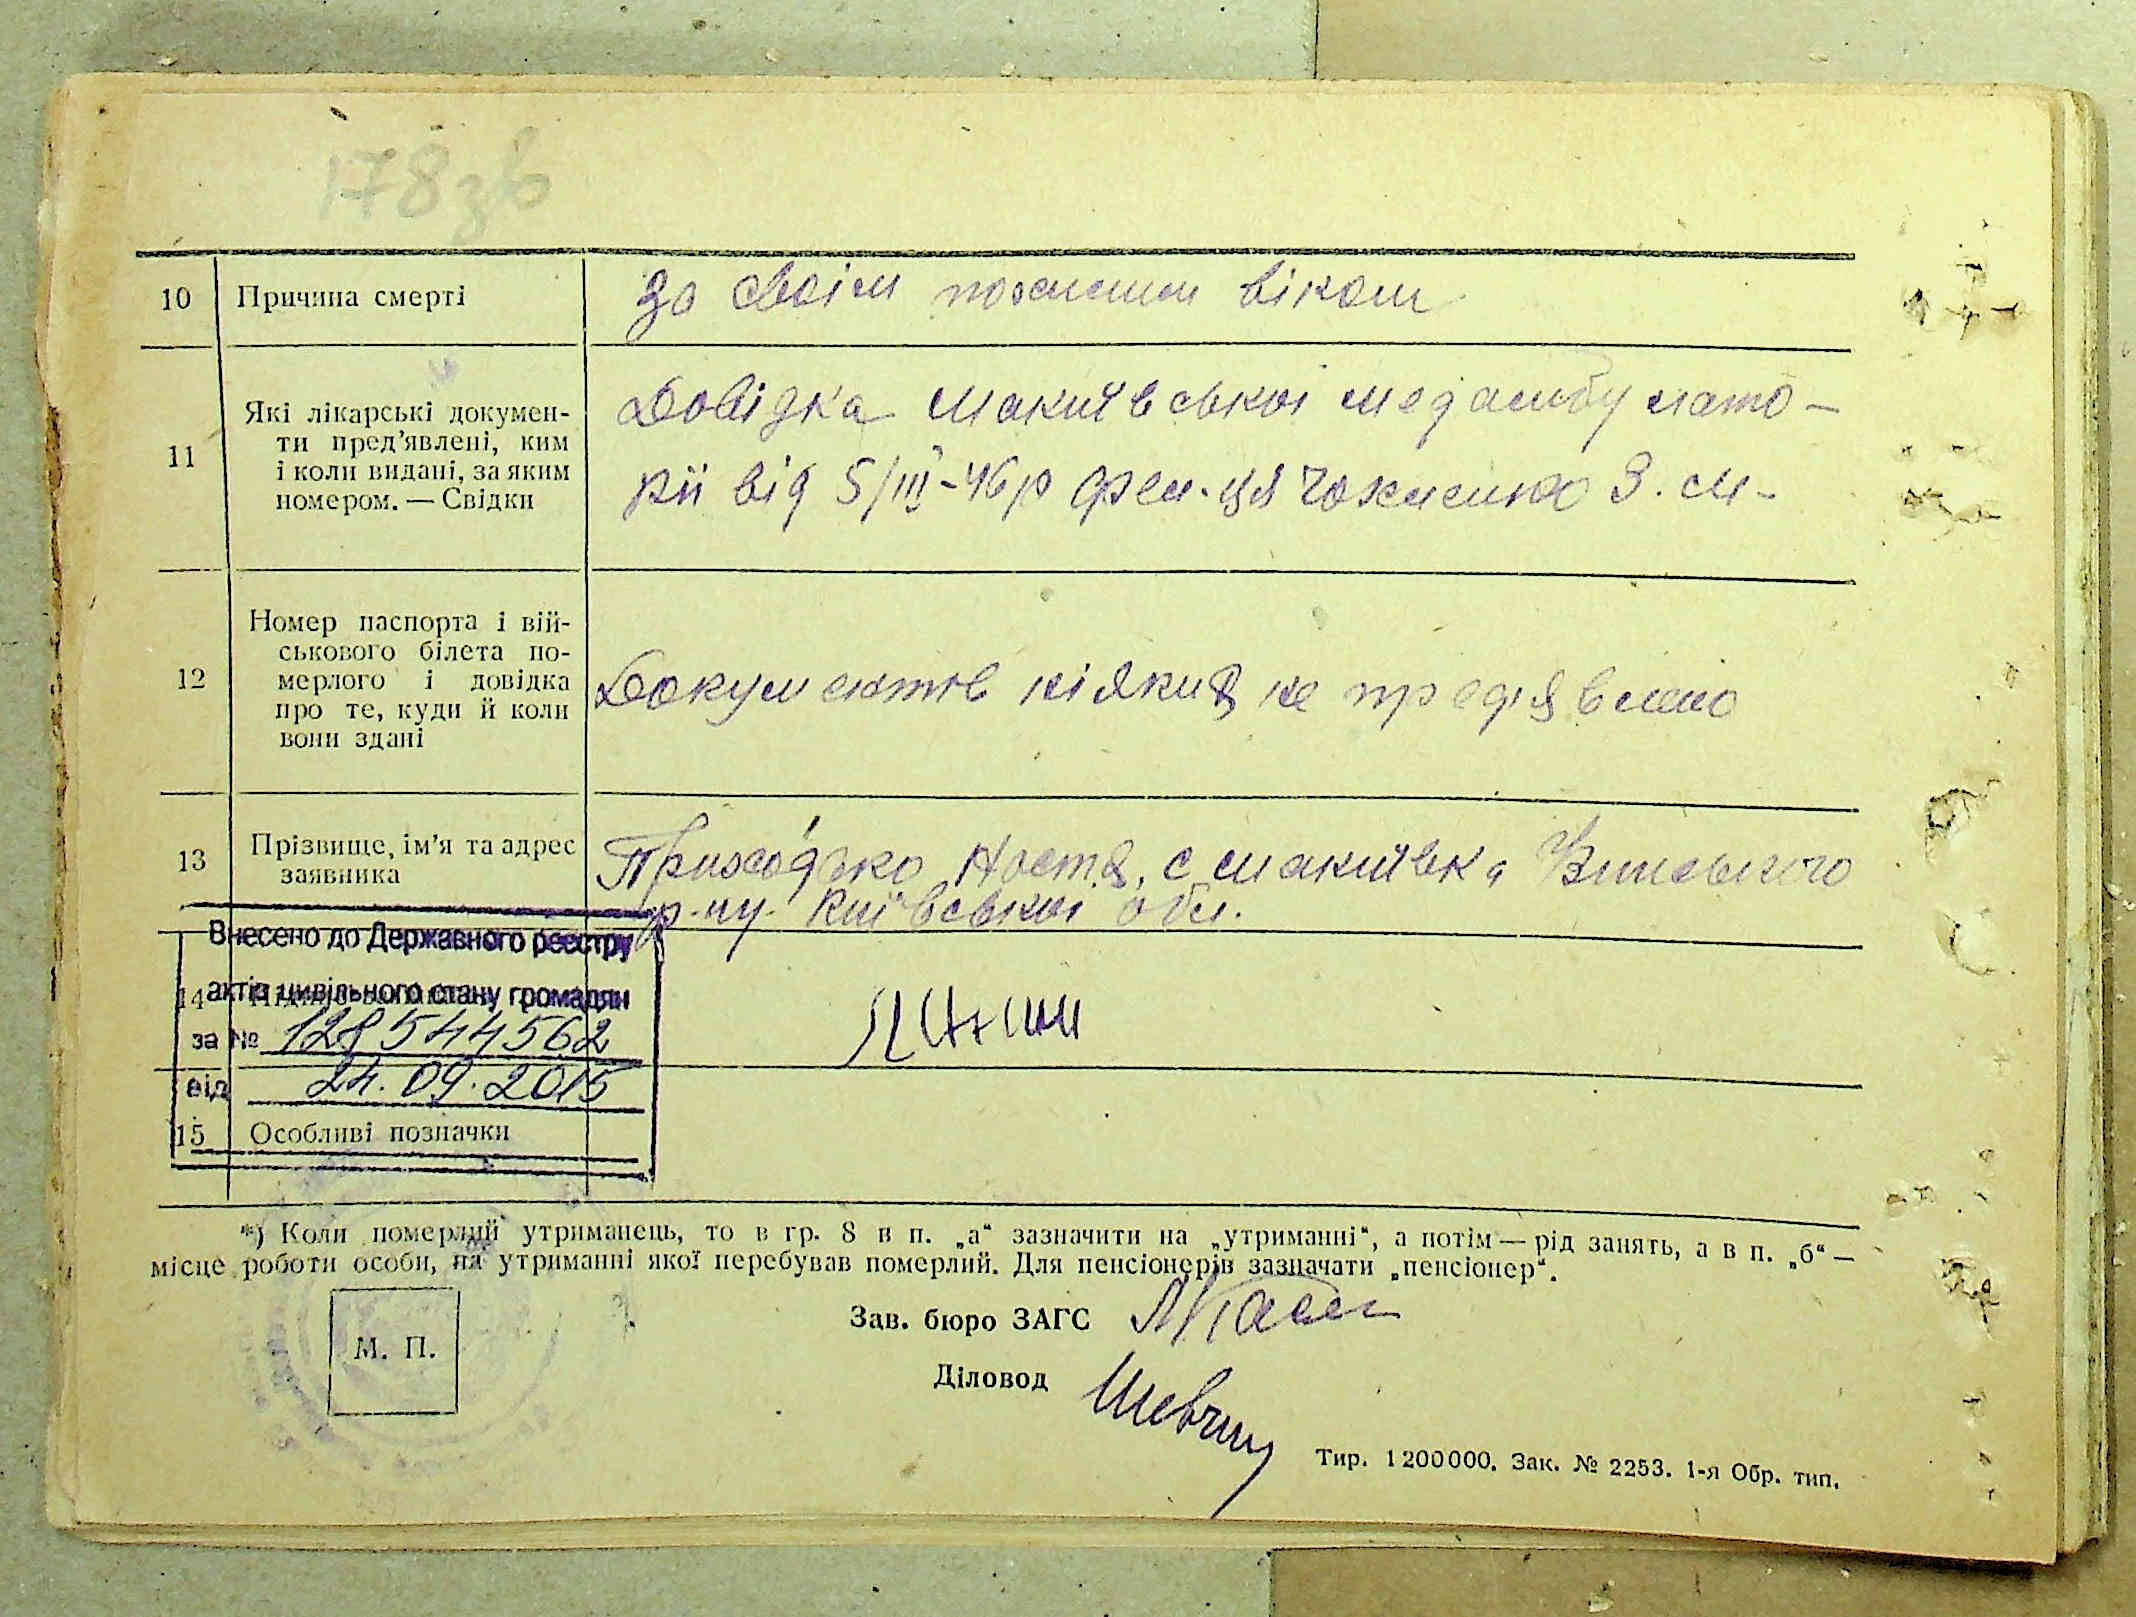 178зв
10 Причина смерті за своім похилим віком
11 Які лікарські докумен-
ти пред’явлені, ким
і коли видані, за яким
номером. — Свідки
Довідка Макиївської медамбулато-
рії від 5/III-46р З. М-
12 Номер паспорта і вій-
ськового білета по-
мерлого і довідка
про те, куди й коли
вони здані
Документів ніяких не предявлено
13 Прізвище, ім’я та адрес
заявника
Приходько Настя, с Макиївка
р-ну. Київської обл.
Внесено до Державного реєстру
14 актів цивільного стану громадян
за № 128544562
від 24.09.2015
15 Особливі позначки
*) Коли померлий утриманець, то в гр. 8 в п. „а“ зазначити на „утриманні“, а потім — рід занять, а в п. „б“ —
місце роботи особи, на утриманні якої перебував померлий. Для пенсіонерів зазначати „пенсіонер“.
Зав. бюро ЗАГС
М. П.
Діловод
Тир. 1 200 000. Зак. № 2253. 1-я Обр. тип.